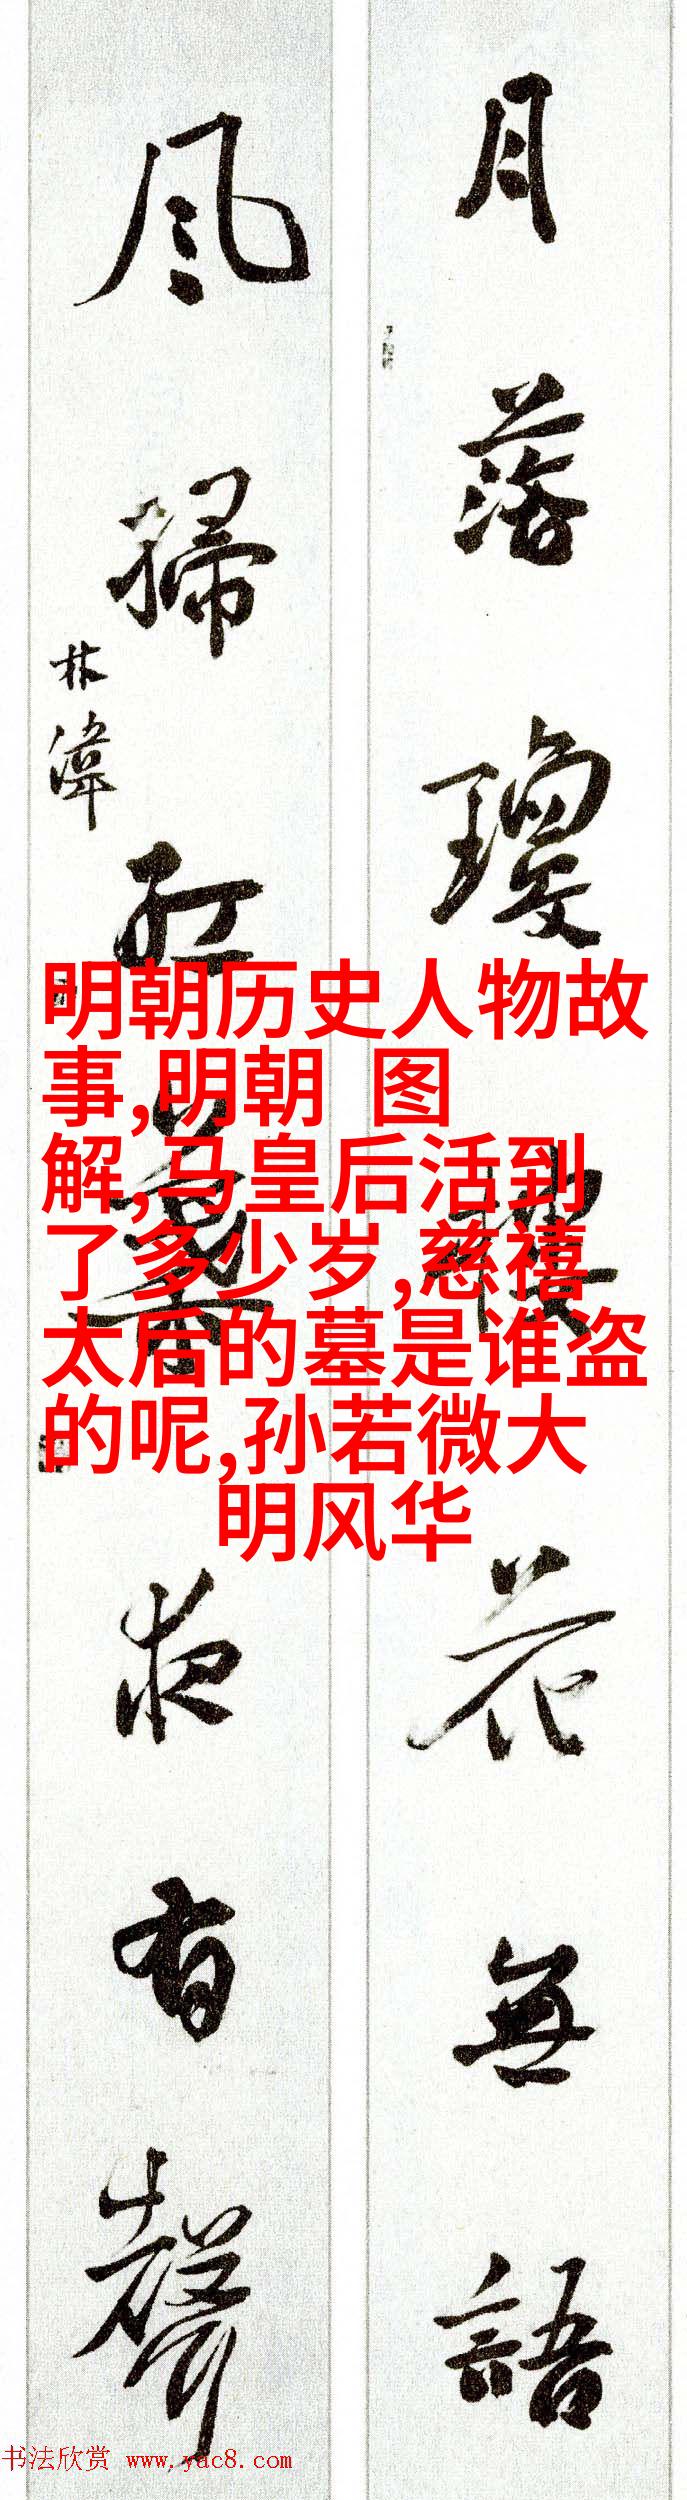 月落瓊樓花無語
风掃紅夜有聲
林
明朝历史人物故
事,明朝 图
解,马皇后活到
了多少岁,慈禧
太后的墓是谁盗
的呢,孙若微大
明风华
书法欣赏 www.yac8.com